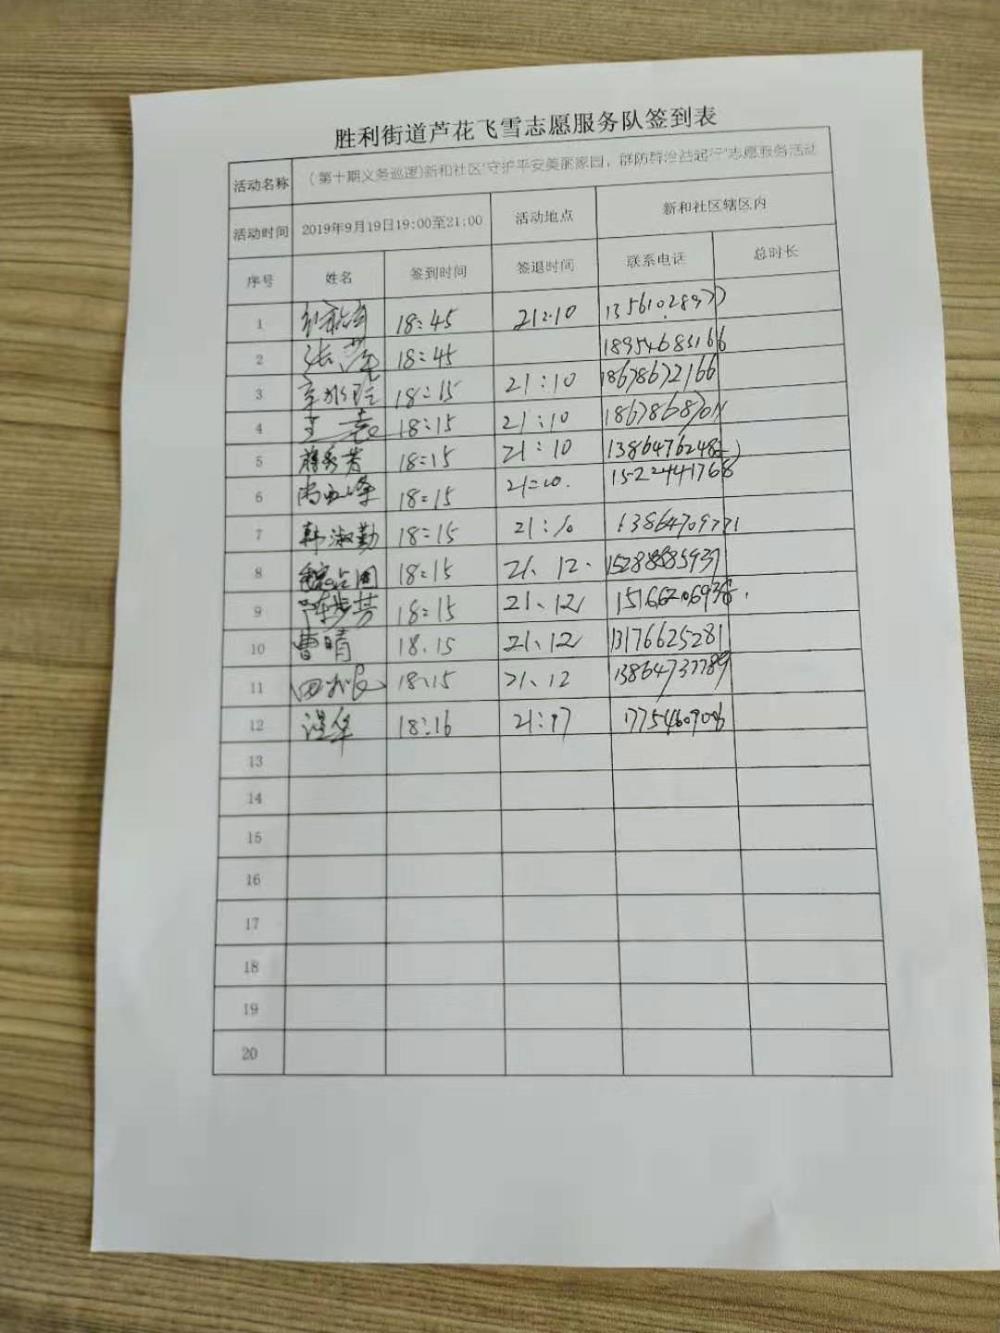 胜利街道芦花飞雪志愿服务队签到表
活动名称 (第十期义务巡逻)新和社区"守护平安美丽家园，群防群治益起行"志愿服务活动
活动时间 2019年9月19日19:00至21:00 活动地点 新和社区辖区内
序号 姓名 签到时间 签退时间 联系电话 总时长
1 18:45 21:10 13561028977
2 张萍 18:45 18954683166
3 18:15 21:10 18678672166
4 王袁 18:15 21:10
5 18:15 21:10
6 尚西峰 18:15 15224441768
7 韩淑勤 18:15 21:10 13864709771
8 魏占国 18:15 21、12、
9 陈步芳 18:15 21、12
10 曹晴 18.15 21、12 13176625281
11 18、15 21、12 13864737789
12 18:16 21:17
13
14
15
16
17
18
19
20